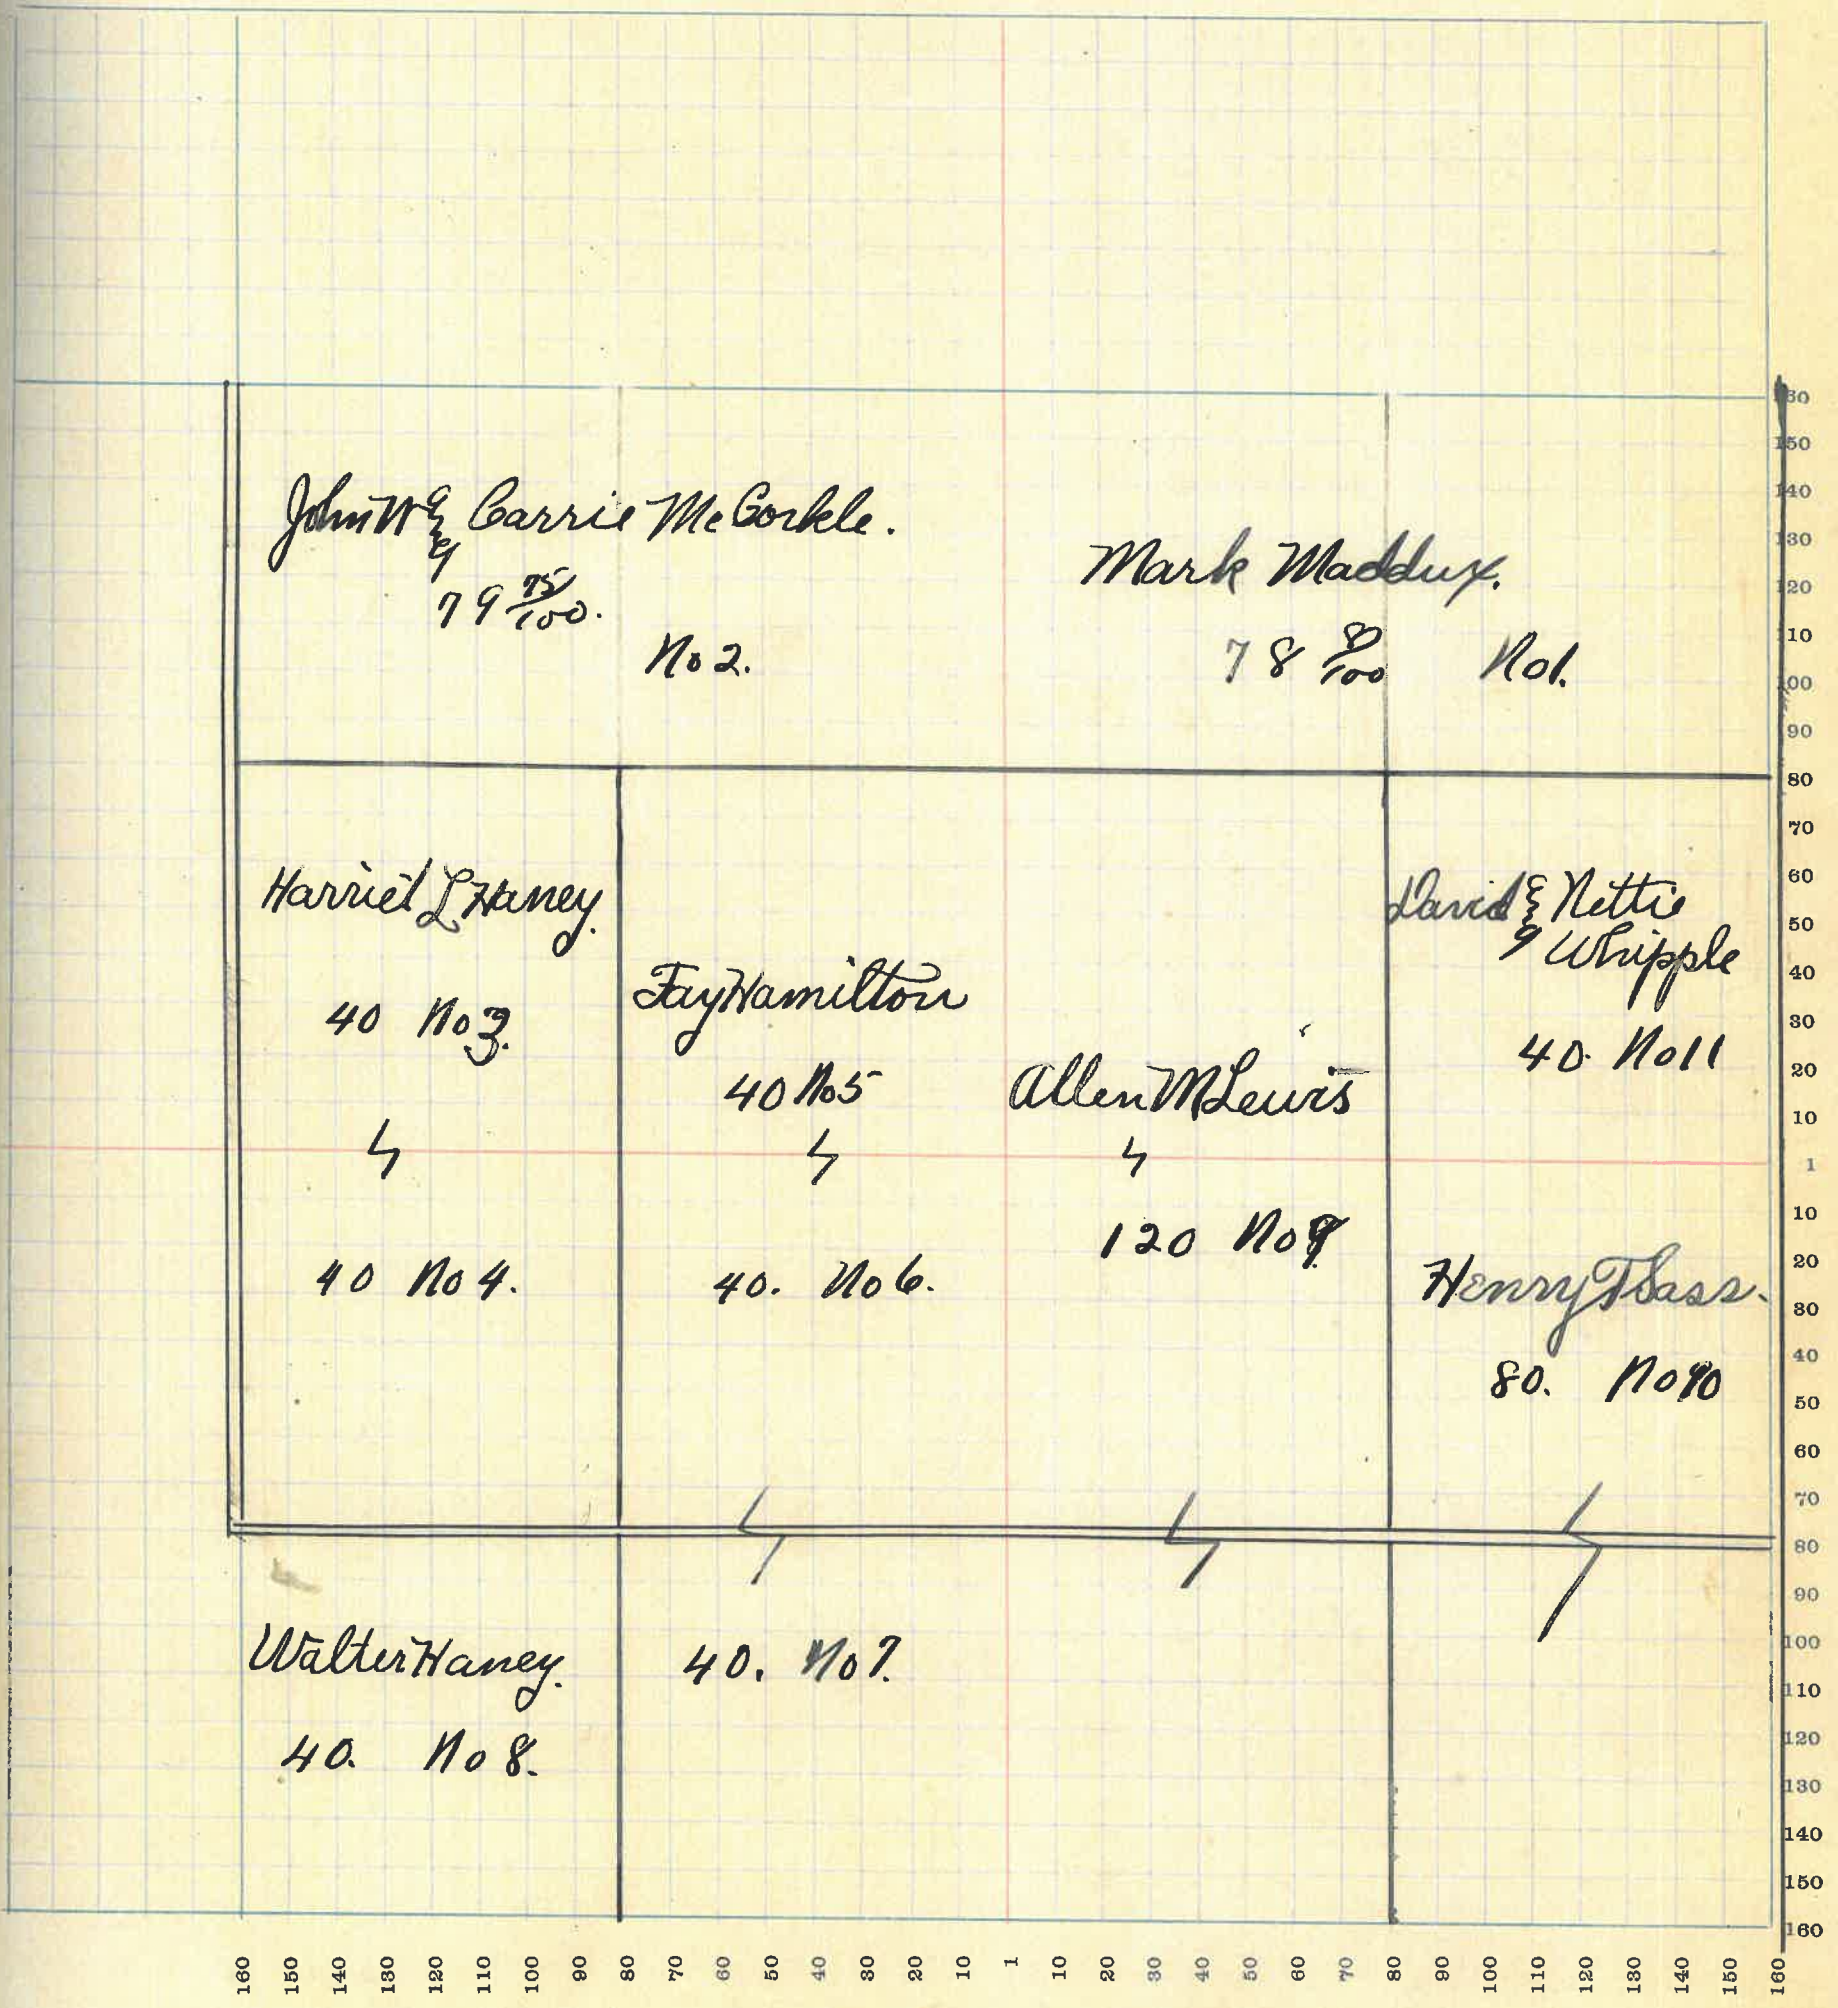 John W & Carrie McCorkle.
79 75/100.
No 2.
Mark Maddux.
78 80/100 No 1.
Harriet L Haney.
40 No 3.
40 No 4.
Fay Hamilton
40 No 5
40. No 6.
Allen M Lewis
120 No 9.
David & Nettie
Whipple
40. No 11
Henry T Sass.
80. No 10
Walter Haney.
40. No 8.
40. No 7.
160
150
140
130
120
110
100
90
80
70
60
50
40
30
20
10
1
10
20
30
40
50
60
70
80
90
100
110
120
130
140
150
160
160 150 140 130 120 110 100 90 80 70 60 50 40 30 20 10 1 10 20 30 40 50 60 70 80 90 100 110 120 130 140 150 160